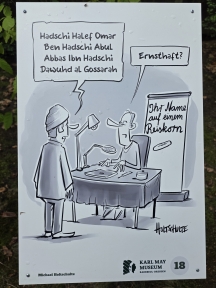 Hadschi Halef Omar
Ben Hadschi Abul
Abbas Ibn Hadschi
Dawuhd al Gossarah
Ernsthaft?
Ihr Name
auf einem
Reiskorn
HOLTSCHULTE
Michael Holtschulte
KARL MAY
MUSEUM
18